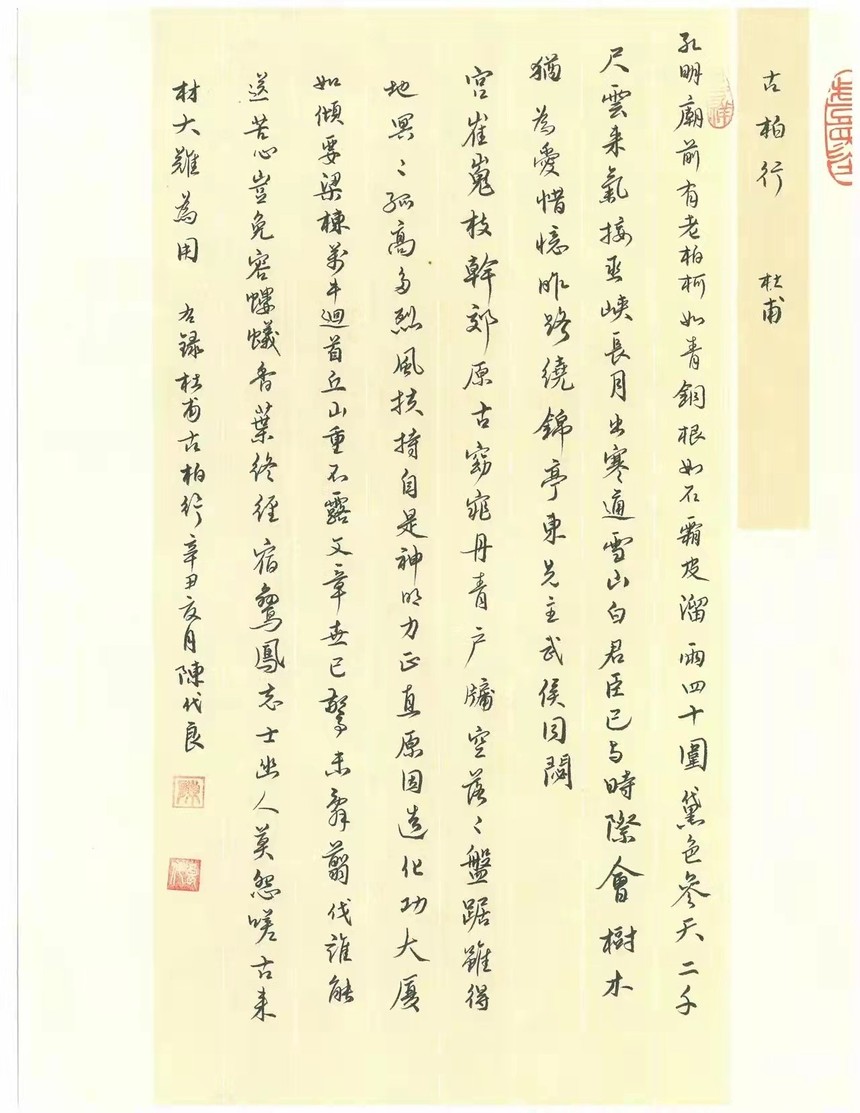 古柏行 杜甫
孔明廟前有老柏柯如青銅根如石霜皮溜雨四十圍黛色參天二千
尺雲来氣接巫峽長月出寒通雪山白君臣已与時際會樹木
猶為愛惜憶昨路繞錦亭東先主武侯同閟
宮崔嵬枝幹郊原古窈窕丹青户牖空落〻盤踞雖得
地冥〻孤高多烈風扶持自是神明力正直原因造化功大厦
如傾要梁棟萬牛迴首丘山重不露文章世已驚未辭翦伐誰能
送苦心豈免容螻蟻香葉終經宿鸞鳳志士幽人莫怨嗟古来
材大難為用 右録杜甫古柏行辛丑夏月陳代良